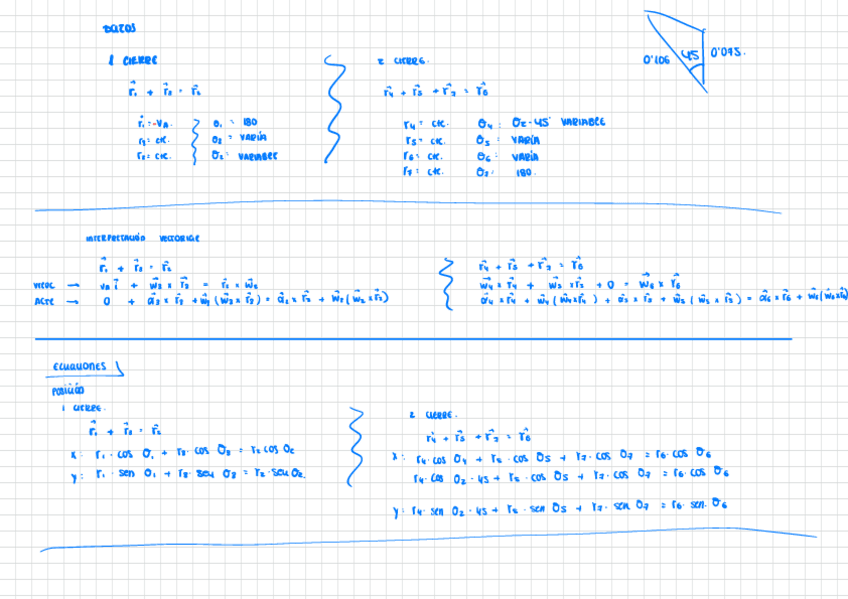 DATOS
1 CIERRE
r₁ + r₃ = r₂
r₁ = -VA. θ₁ = 180
r₃ = cte. θ₃ = VARÍA
r₂ = cte. θ₂ = VARIABLE
2 CIERRE.
r₄ + r₅ + r₇ = r₆
r₄ = cte. θ₄ : θ₂-45 VARIABLE
r₅ = cte. θ₅ : VARÍA
r₆ = cte. θ₆ : VARÍA
r₇ : cte. θ₇ : 180.
0'106 45 0'095.
INTERPRETACIÓN VECTORIAL
r₁ + r₃ = r₂
VELOC → VA i + w₃ x r₃ = r₂ x w₂
ACEL → 0 + α₃ x r₃ + w₃ (w₃ x r₃) = α₂ x r₂ + w₂ (w₂ x r₂)
r₄ + r₅ + r₇ = r₆
w₄ x r₄ + w₅ x r₅ + 0 = w₆ x r₆
α₄ x r₄ + w₄ (w₄ x r₄) + α₅ x r₅ + w₅ (w₅ x r₅) = α₆ x r₆ + w₆ (w₆ x r₆)
ECUACIONES
POSICIÓN
1 CIERRE.
r₁ + r₃ = r₂
x: r₁ · cos θ₁ + r₃ · cos θ₃ = r₂ cos θ₂
y: r₁ · sen θ₁ + r₃ · sen θ₃ = r₂ · sen θ₂.
2 CIERRE.
r₄ + r₅ + r₇ = r₆
x: r₄ · cos θ₄ + r₅ · cos θ₅ + r₇ · cos θ₇ = r₆ · cos θ₆
r₄ · cos θ₂ - 45 + r₅ · cos θ₅ + r₇ · cos θ₇ = r₆ · cos θ₆
y: r₄ · sen θ₂ - 45 + r₅ · sen θ₅ + r₇ · sen θ₇ = r₆ · sen · θ₆